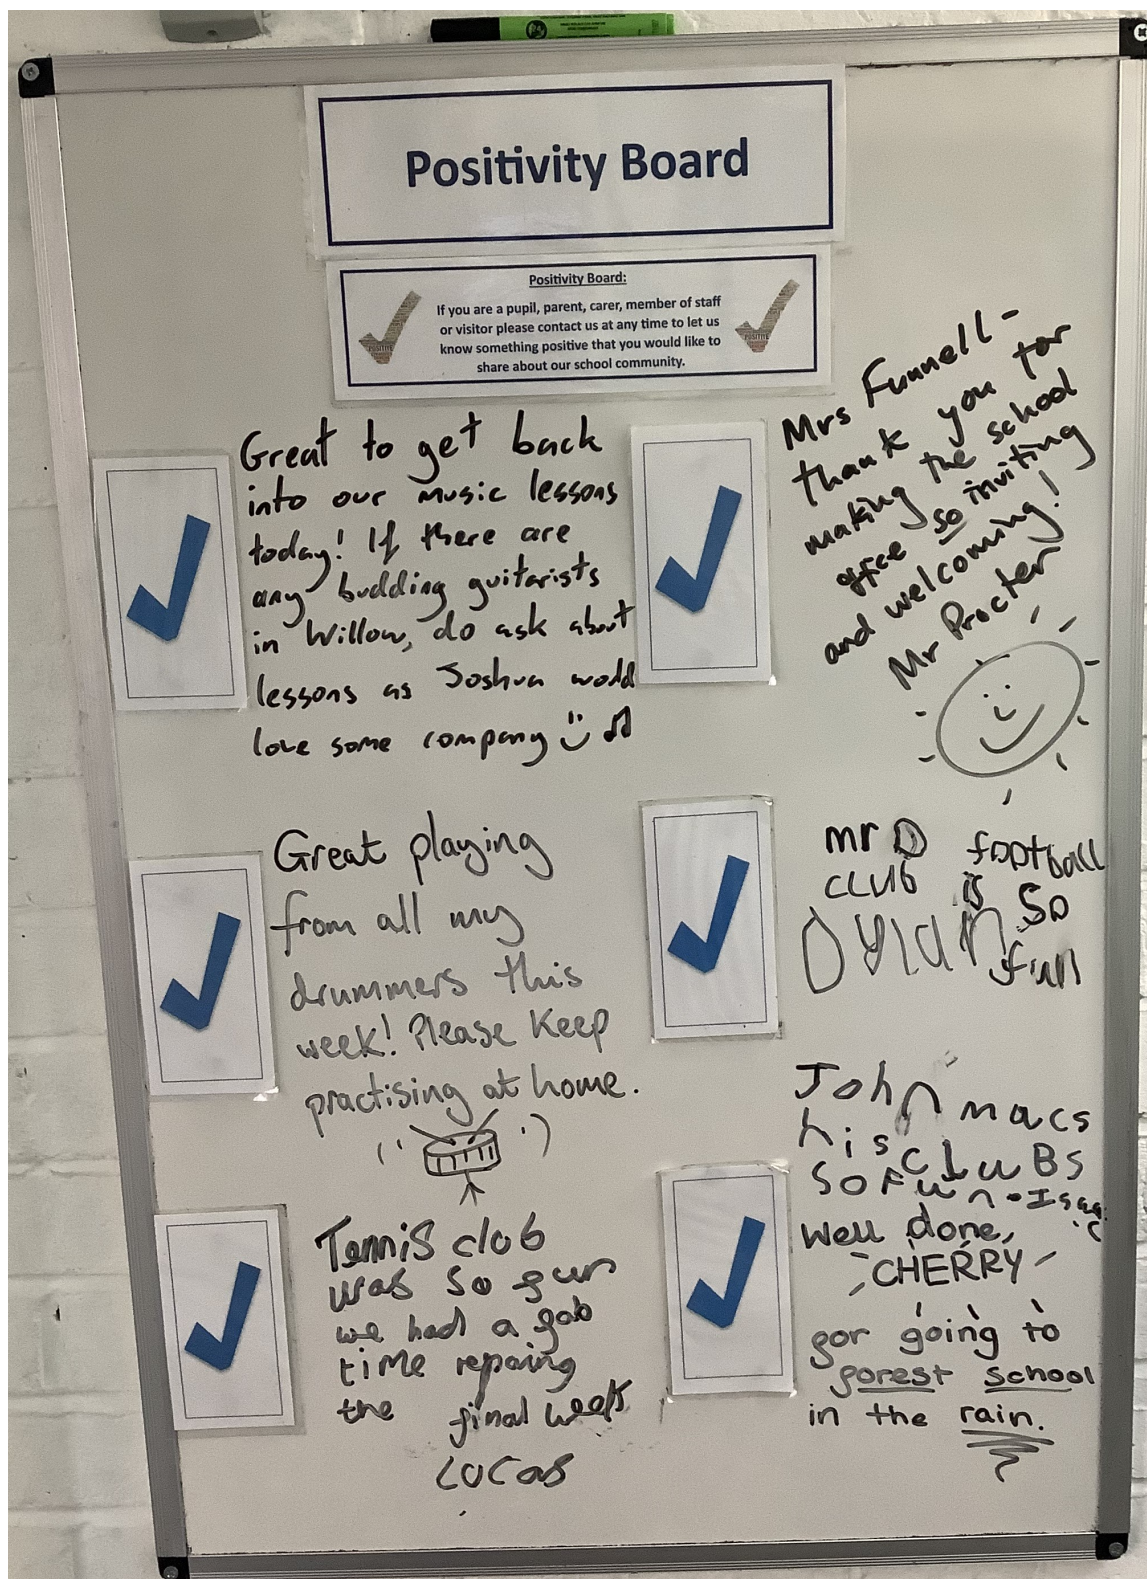 Positivity Board
Positivity Board:
If you are a pupil, parent, carer, member of staff
or visitor please contact us at any time to let us
know something positive that you would like to
share about our school community.
Great to get back
into our music lessons
today! If there are
any budding guitarists
in Willow, do ask about
lessons as Joshua would
love some company
Mrs Funnell -
thank you for
making the school
office so inviting
and welcoming!
Mr Procter
Great playing
from all my
drummers this
week! Please keep
practising at home.
mr D football
club is so
Dylan fun
Tennis club
was so fun
we had a fab
time
the final week
Lucas
John macs
his cluBs
so Fun - Isaac
Well done,
CHERRY
for going to
forest school
in the rain.